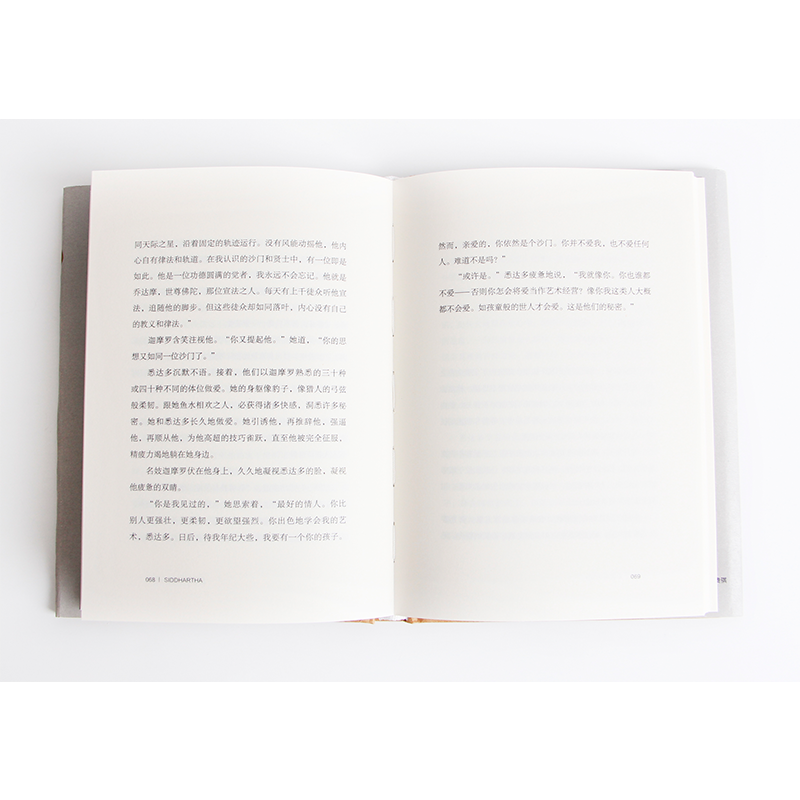 同天际之星，沿着固定的轨迹运行。没有风能动摇他，他内
心自有律法和轨道。在我认识的沙门和贤士中，有一位即是
如此。他是一位功德圆满的觉者，我永远不会忘记。他就是
乔达摩，世尊佛陀，那位宣法之人。每天有上千徒众听他宣
法，追随他的脚步。但这些徒众却如同落叶，内心没有自己
的教义和律法。”
迦摩罗含笑注视他。“你又提起他。”她道，“你的思
想又如同一位沙门了。”
悉达多沉默不语。接着，他们以迦摩罗熟悉的三十种
或四十种不同的体位做爱。她的身躯像豹子，像猎人的弓弦
般柔韧。跟她鱼水相欢之人，必获得诸多快感，洞悉许多秘
密。她和悉达多长久地做爱。她引诱他，再推辞他，强逼
他，再顺从他，为他高超的技巧雀跃，直至他被完全征服，
精疲力竭地躺在她身边。
名妓迦摩罗伏在他身上，久久地凝视悉达多的脸，凝视
他疲惫的双睛。
“你是我见过的，”她思索着，“最好的情人。你比
别人更强壮，更柔韧，更欲望强烈。你出色地学会我的艺
术，悉达多。日后，待我年纪大些，我要有一个你的孩子。
068 | SIDDHARTHA
然而，亲爱的，你依然是个沙门。你并不爱我，也不爱任何
人。难道不是吗？”
“或许是。”悉达多疲惫地说，“我就像你。你也谁都
不爱——否则你怎会将爱当作艺术经营？像你我这类人大概
都不会爱。如孩童般的世人才会爱。这是他们的秘密。”
069